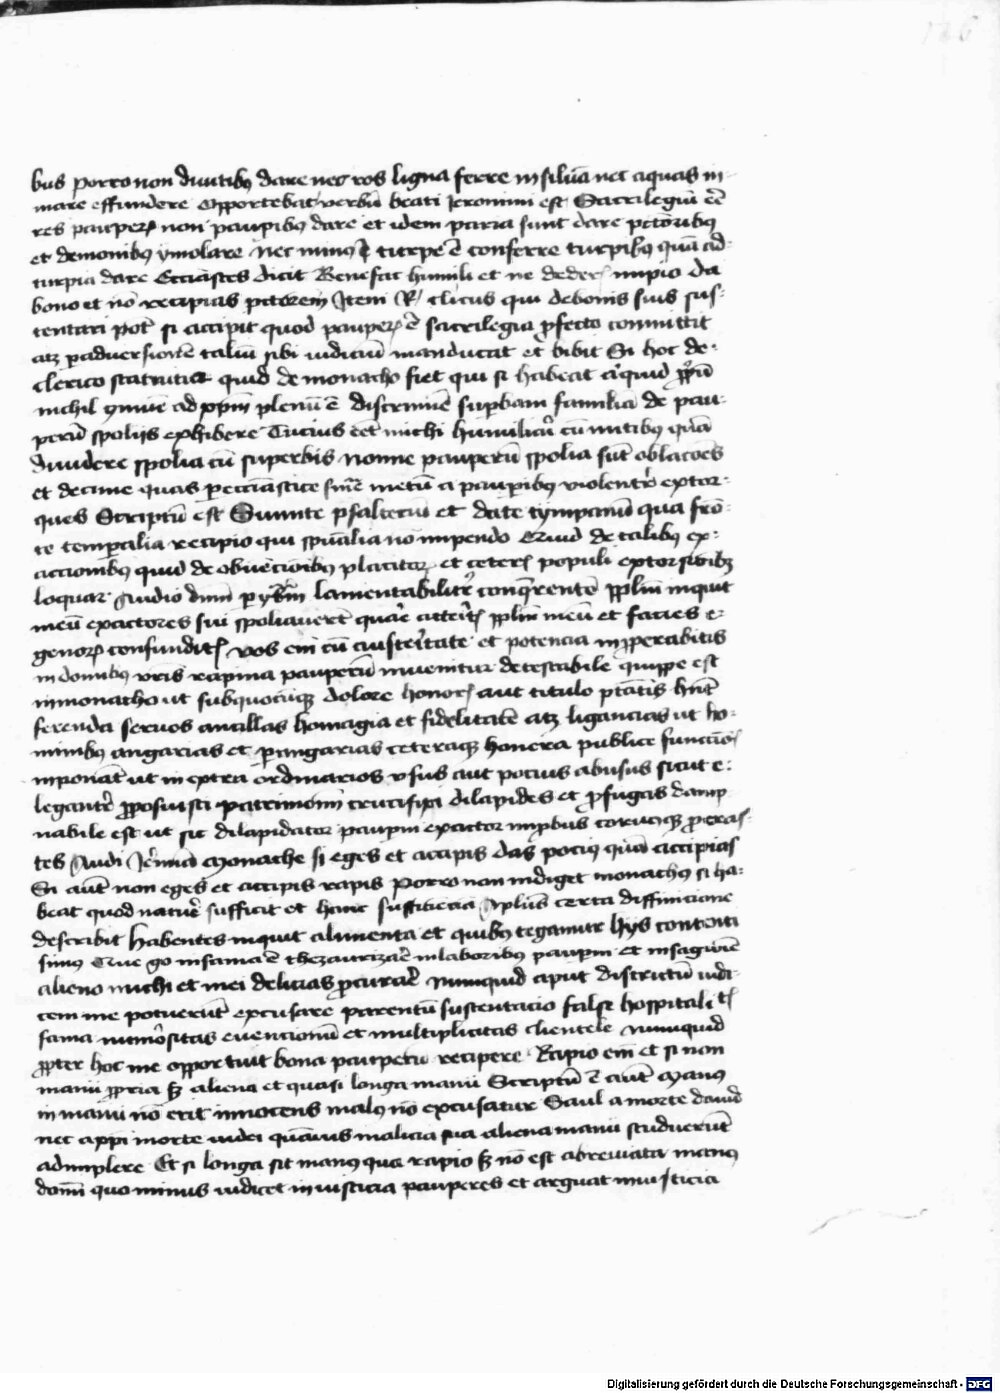 126
bus porro non diuitibꝫ dare nec ros ligna ferre in siluā nec aquas in
mare effundere Opportebat verbū beati Jeronimi est Sacrilegiū ēē
res pauperꝫ non paupibꝫ dare et idem paria sunt dare pctōribꝫ
et demonibꝫ ymolare Nec minꝰ turpe ē conferre turpibꝫ quā ad
turpia dare Ecctastes dicit Benefac humili et ne dederꝭ impio da
bono et nō recipias pctorem Item clicus qui de bonis suis sus-
tentari pot̄ si accipit quod pauperꝫ ē sacrilegia ꝓfecto committit
atꝫ ꝑ aduersionē taliū sibi iudiciū manducat et bibit Si hoc de
clerico statuitur quid de monacho fiet qui si habeat aliquid ꝓpriū
nichil ꝯmune ad xpm̄ plenū ē discrimine suꝑbam familiā de pau-
perū spolijs exhibere Tucius eēt michi humiliari cū mitibꝫ quā
diuidere spolia cū superbis Nonne pauperū spolia sūt oblacōes
et decime quas ꝑ ecciastice sine metū a pauꝑibꝫ violentr̄ extor-
ques Scriptū est Sumite psalteriū et date tympanū qua frō-
te tempalia recipio qui spūalia nō impendo Quid de talibꝫ ex-
accionibꝫ quid de obuēcioibꝫ placitoꝝ et ceterꝭ populi extorsioībꝫ
loquar Audio dnm̄ ꝑ ysaiam lamentabilitr̄ conq̄rentē Pplm̄ inquit
meū exactores sui spoliauert̄ quare atterītꝭ pplm̄ meū et facies e-
genoꝝ confunditꝭ vos em̄ cū austeritate et potencia impabitis
in domibꝫ vr̄is rapina pauperū inuenitur detestabile quippe est
in monacho ut sub quocūqꝫ dolore honorꝭ aut titulo ptātis hnt̄
ferenda seruos ancillas homagia et fidelitatē atꝫ ligancias ut ho-
minibꝫ angarias et ꝑangarias ceteraqꝫ honera publice funccōꝭ
imponāt ut in extra ordinarios vsus aut pocius abusus sicut e-
legantr̄ ꝓposuisti patrimonī crucifixi dilapides et ꝓfugas damp-
nabile est ut sit dilapidator paupm̄ exactor
tes Audi Jeremia Monache si eges et accipis das pociꝰ quā accipias
Si aut̄ non eges et accipis rapis Porro non indiget monachꝰ si ha-
beat quod nature sufficit et hanc sufficiēcia Aplus certa diffinicione
describit Habentes inquit alimenta et quibꝫ tegamur hys contēti
simus Que go insania ē thezaurizare in laboribus paupm̄ et in sagwīe
alieno michi et mei delicias ꝓcurare Nunquid aput districtū iudi-
cem me poterūt excusare parentū sustentacio false hospitalitꝭ
fama numosītas euencionū et multiplicitas clientele Nunquid
ꝓpter hoc me opportuit bona pauperū recipere Rapio em̄ et si non
manu ꝓpria sꝫ aliena et quasi longa manu Scriptū ē aut̄ Manꝰ
in manu nō erit innocens malꝰ nō excusatur Saul a morte dauid
nec a xpi morte iudei quāuis malicia sua aliena manu studuerūt
adimplere Et si longa sit manꝰ qua rapio sꝫ nō est abreuiata manꝰ
domī quo minus iudicet in iusticia pauperes et arguat iniusticia
Digitalisierung gefördert durch die Deutsche Forschungsgemeinschaft - DFG